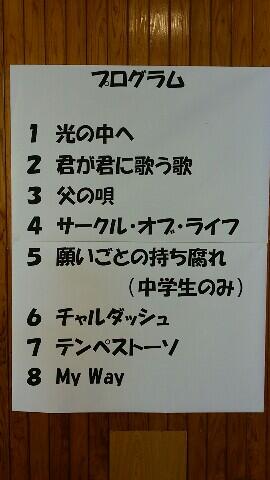 プログラム
1 光の中へ
2 君が君に歌う歌
3 父の唄
4 サークル・オブ・ライフ
5 願いごとの持ち腐れ
（中学生のみ）
6 チャルダッシュ
7 テンペストーソ
8 My Way